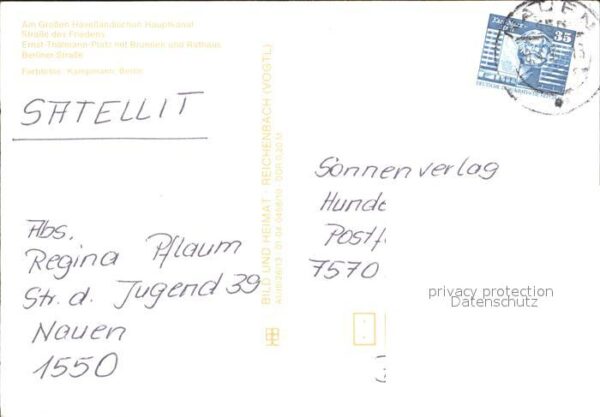 Am Großen Havelländischen Hauptkanal
Straße des Friedens
Ernst-Thälmann-Platz mit Brunnen und Rathaus
Berliner Straße
Farbfotos: Kampmann, Berlin
SATELLIT
Abs.
Regina Pflaum
Str. d. Jugend 39
Nauen
1550
BILD UND HEIMAT · REICHENBACH (VOGTL)
DDR 0,20 M
35
NAUEN
Sonnenverlag
Hunde
Postf
7570
privacy protection
Datenschutz